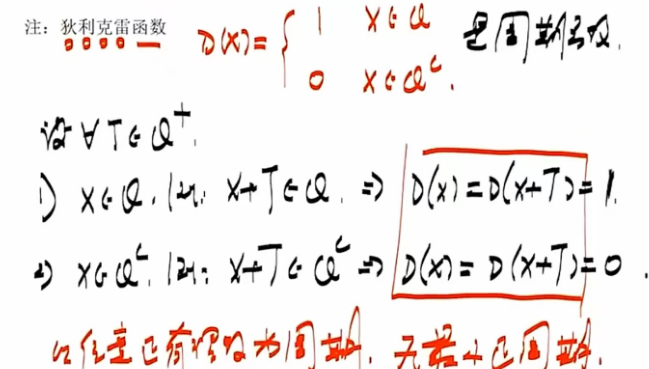 注：狄利克雷函数 D(x)={ 1 x∈Q 是周期函数.
0 x∈Q^c.
设 ∀T∈Q^+.
1) x∈Q. 则: x+T∈Q. ⇒ D(x)=D(x+T)=1.
2) x∈Q^c. 则: x+T∈Q^c ⇒ D(x)=D(x+T)=0.
以任意正有理数为周期. 无最小正周期.